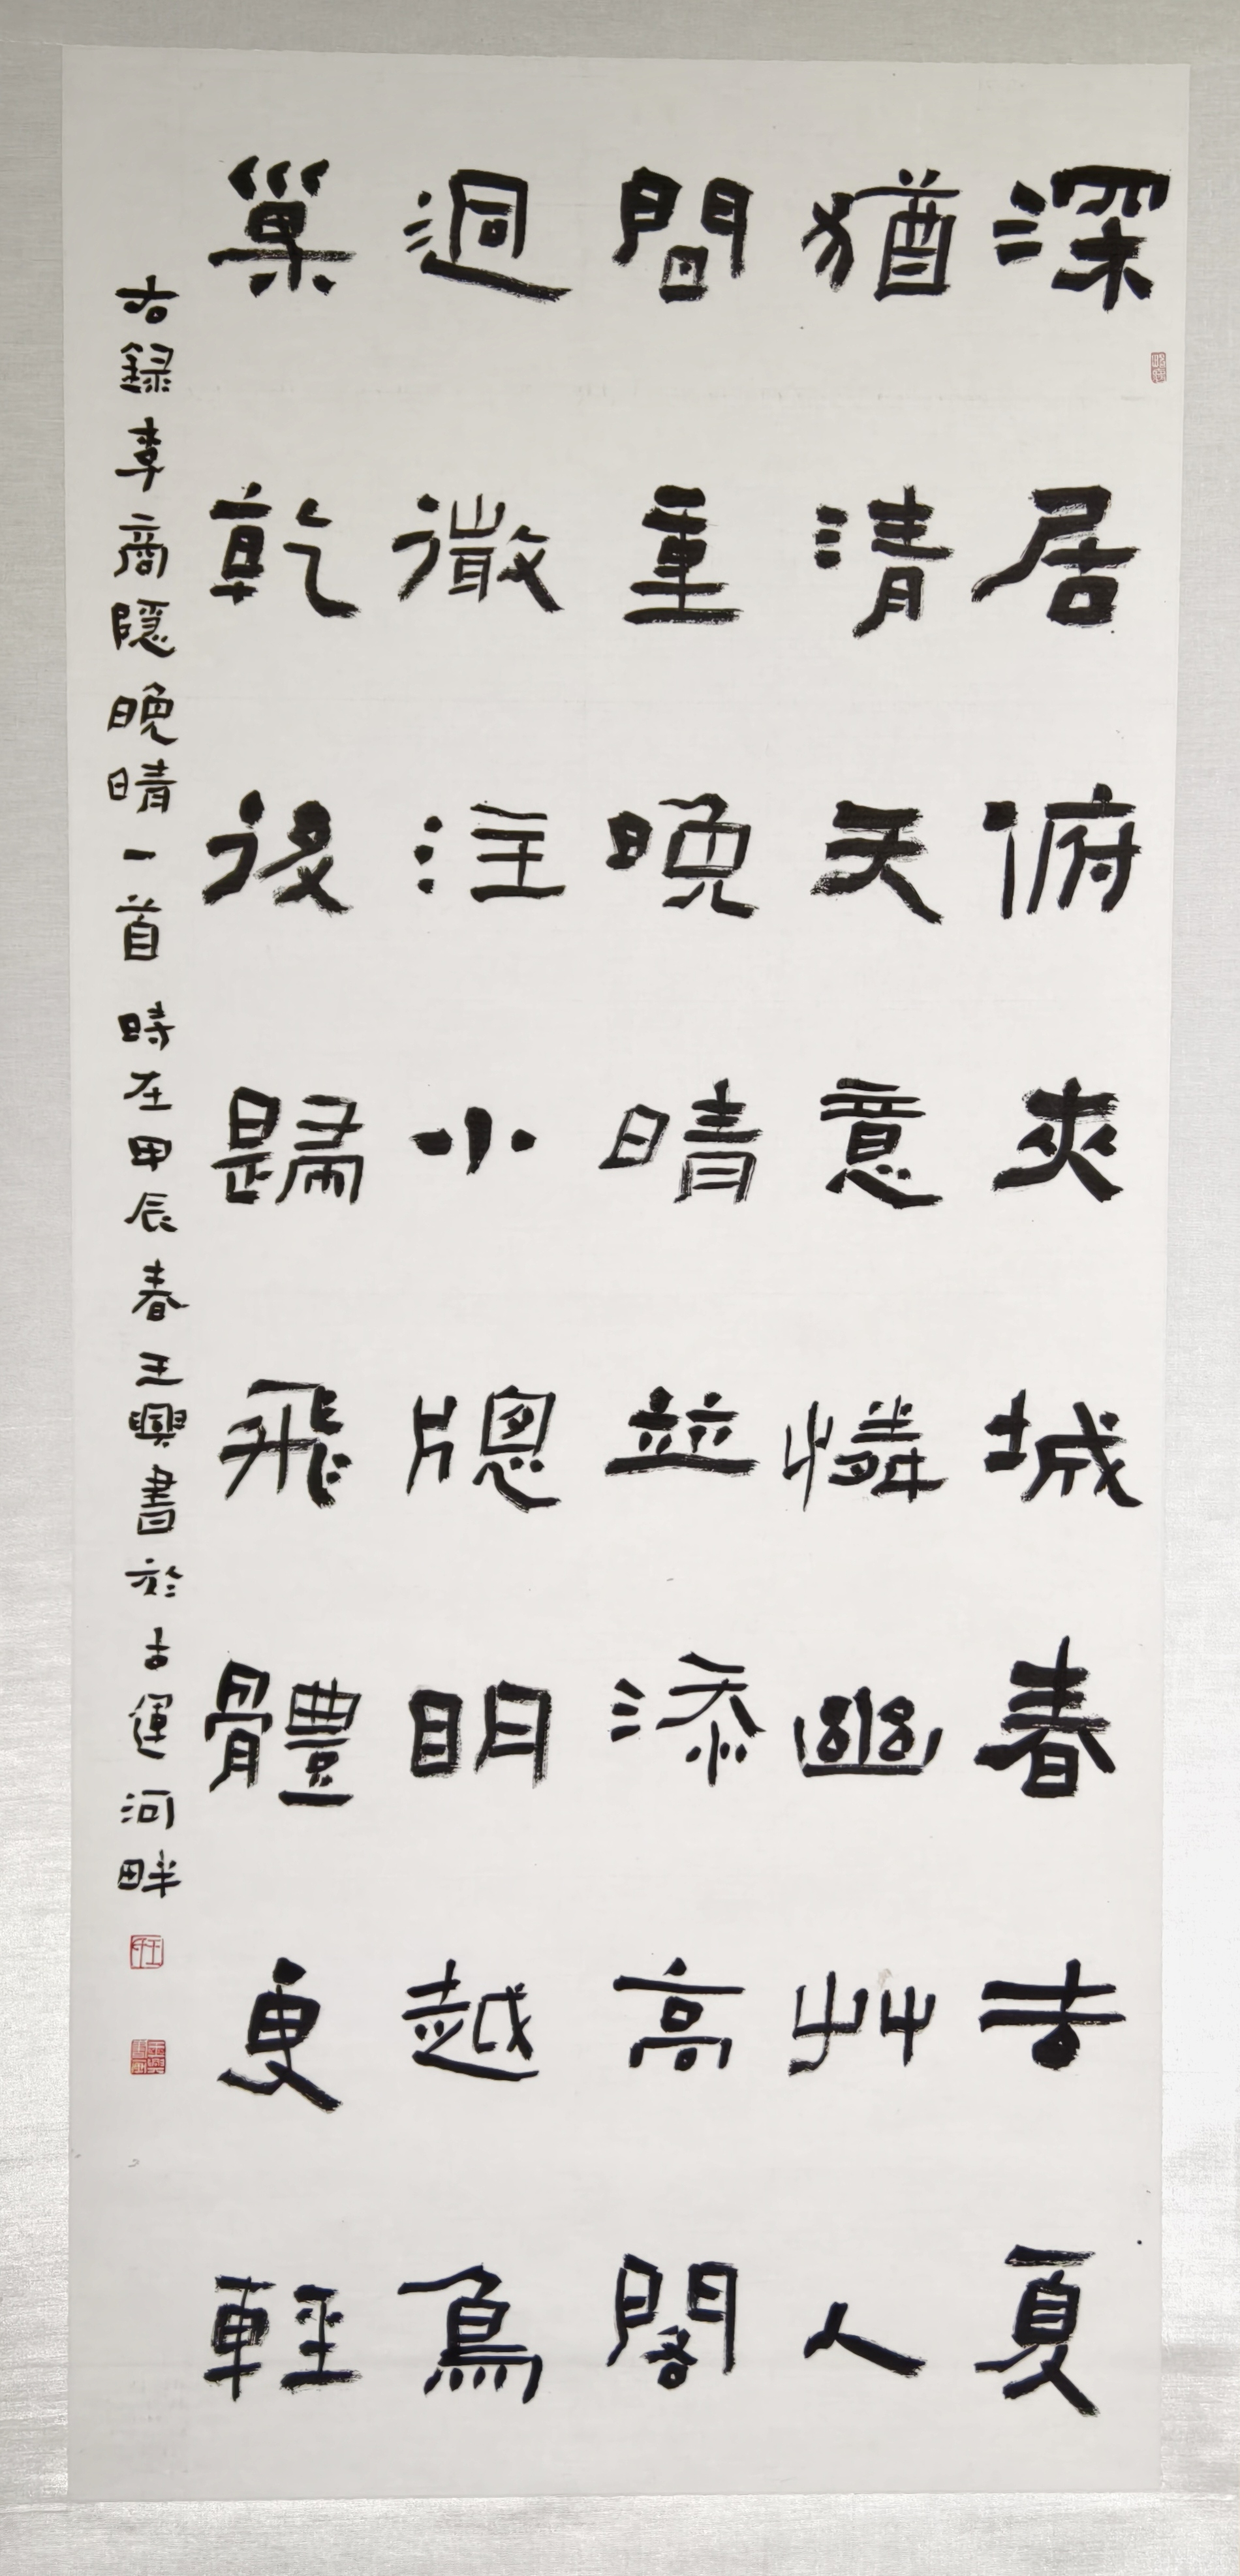 深居俯夾城春去夏
猶清天意憐幽艸人
間重晚晴並添高閣
迥微注小牕明越鳥
巢乾後歸飛體更輕
右録李商隱晚晴一首時在甲辰春王興書於古運河畔